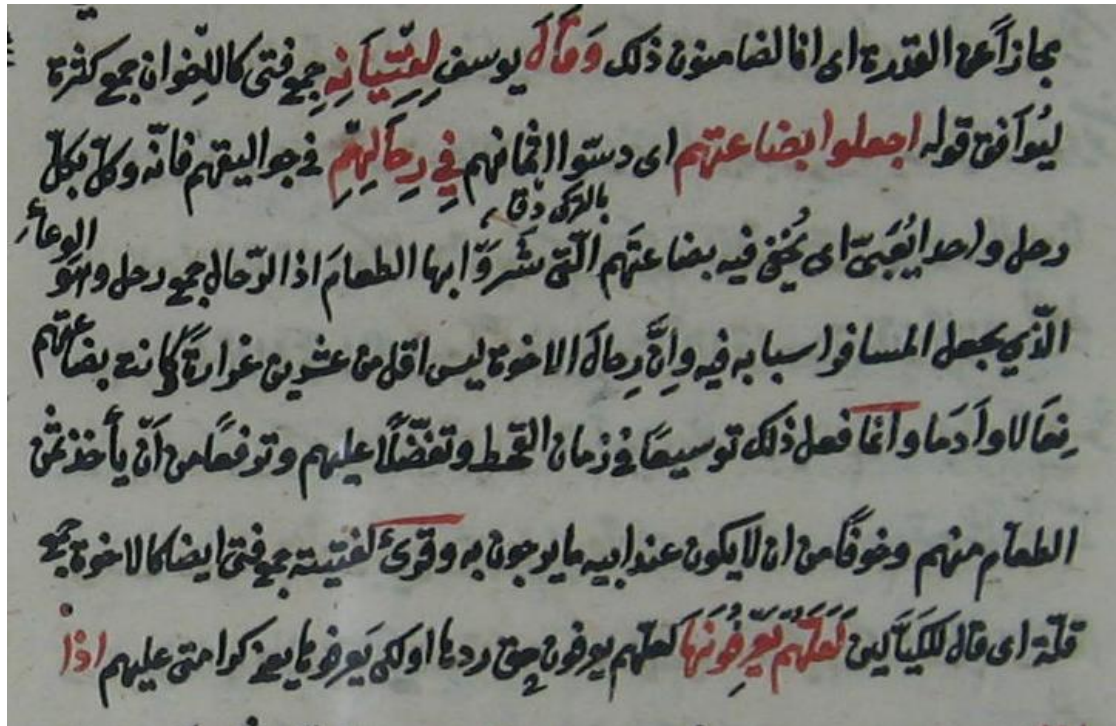 مجازاً عن القدرة اى انا لضامنون ذلك وَقَالَ يوسف لِفِتْيَانِهِ جمع فتى كالاِخوان جمع كثرة
ليُوافق قوله اجعلوا بضاعتهم اى دسّوا اثمانهم فِي رِحَالِهِمْ فى جواليقهم فانّه وكّل بكلّ
بالتركى
رحل واحدا يُعَبّىّ اى يُخفى فيه بضاعتَهم الّتى شَرَوْا بها الطعامَ اذ الرّحال جمع رحل وهو الوعاءُ
الّذي يجعل المسافر اسبابه فيه وانَّ رِحالَ الاخوة ليس اقل من عشرين غرارةً وكانت بضاعتهم
نِعَالا واَدَما وانّما فعل ذلك توسيعًا فى زمان القحط وتفضّلًا عليهم وترفعًا من اَنْ يأخذ ثمن
الطعام منهم وخوفًا من ان لا يكون عند ابيه ما يرجعون به وقرئ لفتيته جمع فتى ايضا كالاخوة جمع
قلّة اى قال للكيّالين لَعَلَّهُمْ يَعْرِفُونَهَا لعلّهم يعرفون حق ردها او لكى يَعرفوها يعنى كرامتى عليهم اذا